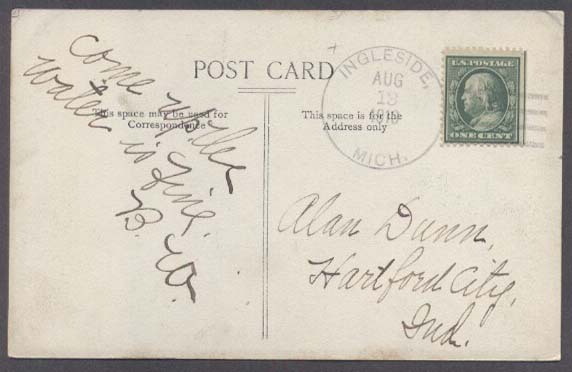 POST CARD
This space may be used for
Correspondence
This space is for the
Address only
Come up the
water is fine.
B. W.
INGLESIDE,
AUG
MICH.
U.S. POSTAGE
ONE CENT
Alan Dunn,
Hartford City,
Ind.